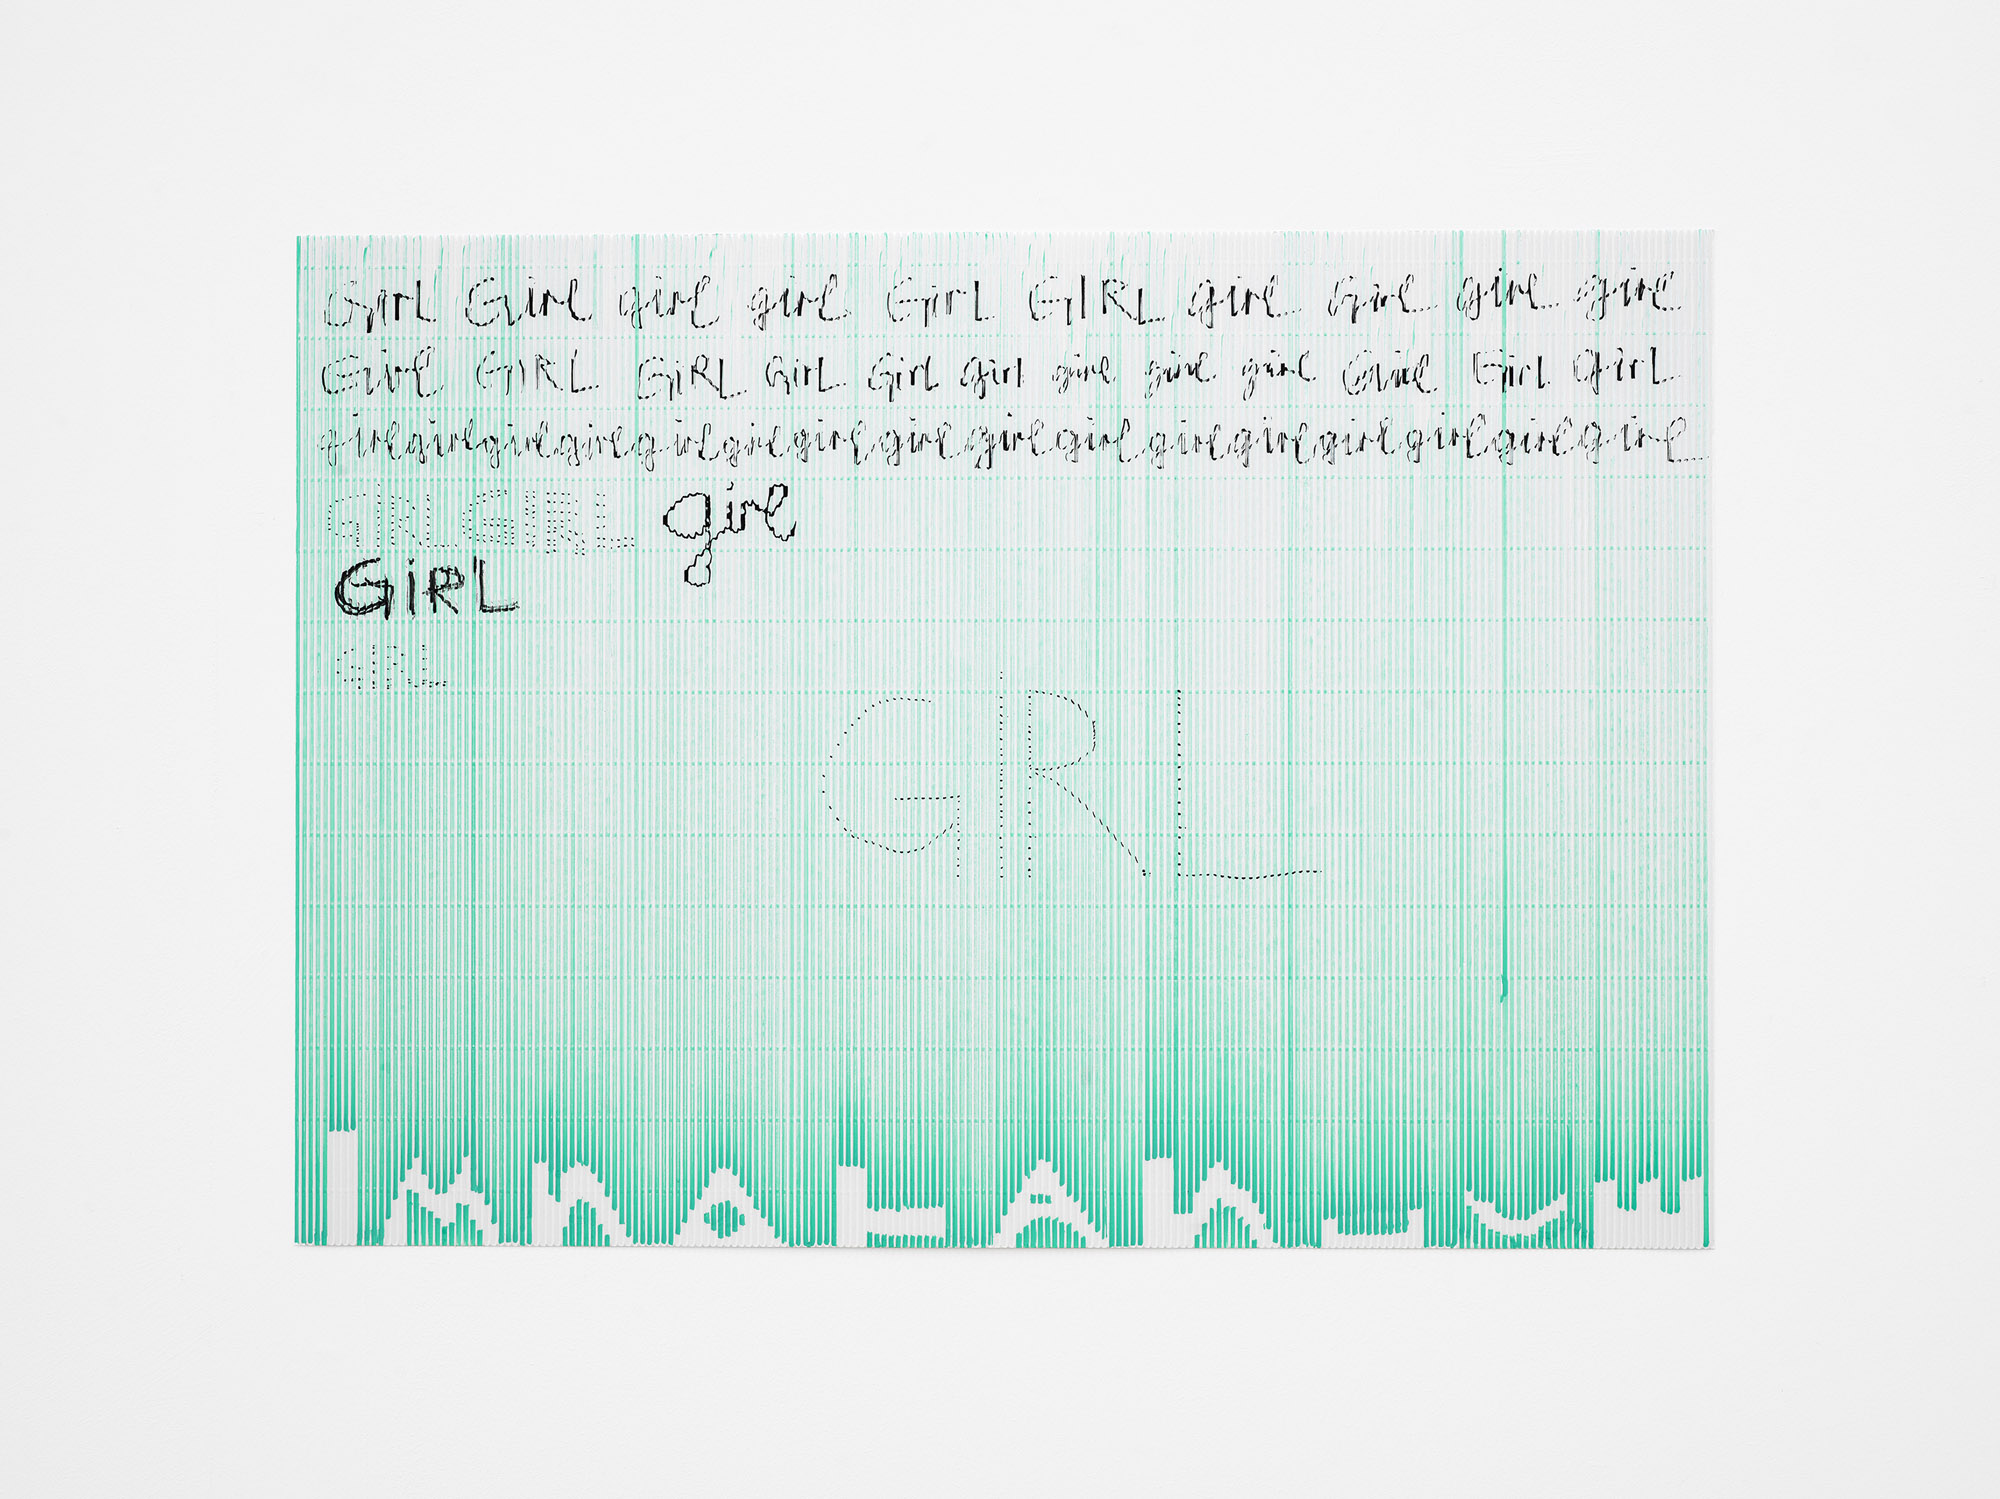 GirL Girl girl girl GirL GIRL girl Girl girl girl
Girl GIRL GiRL GirL Girl girl girl girl girl Girl Girl GirL
girlgirlgirlgirlgirlgirlgirlgirlgirlgirlgirlgirlgirlgirlgirlgirl
GIRLGIRL girl
GiRL
GIRL
GIRL